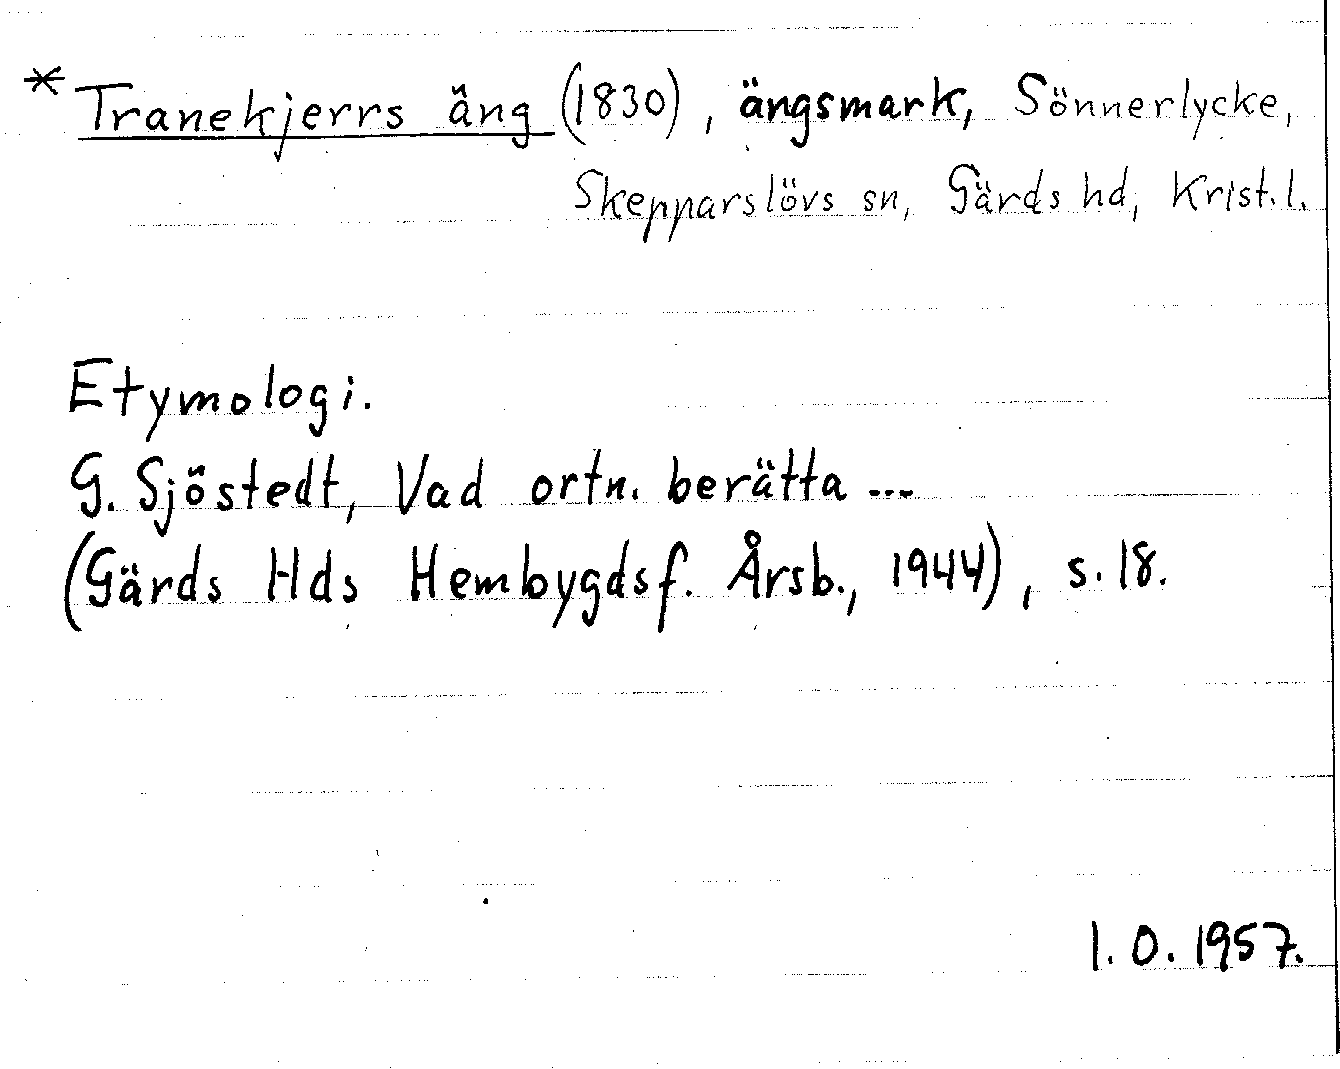 * Tranekjerrs äng (1830), ängsmark, Sönnerlycke,
Skepparslövs sn, Gärds hd, Krist. l.
Etymologi.
G. Sjöstedt, Vad ortn. berätta ...
(Gärds Hds Hembygdsf. Årsb., 1944), s. 18.
I. O. 1957.